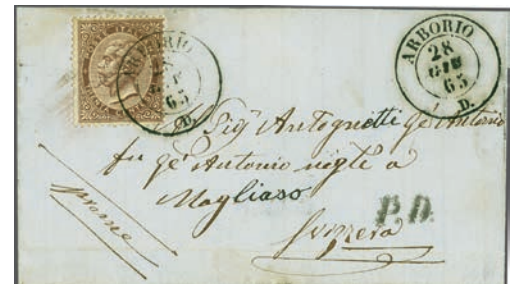 ARBORIO
65
D.
ARBORIO
28
GIU
65
D.
Sig Antognetti Gé Antonio
fu gé Antonio
Magliaso
Svizzera
P.D.